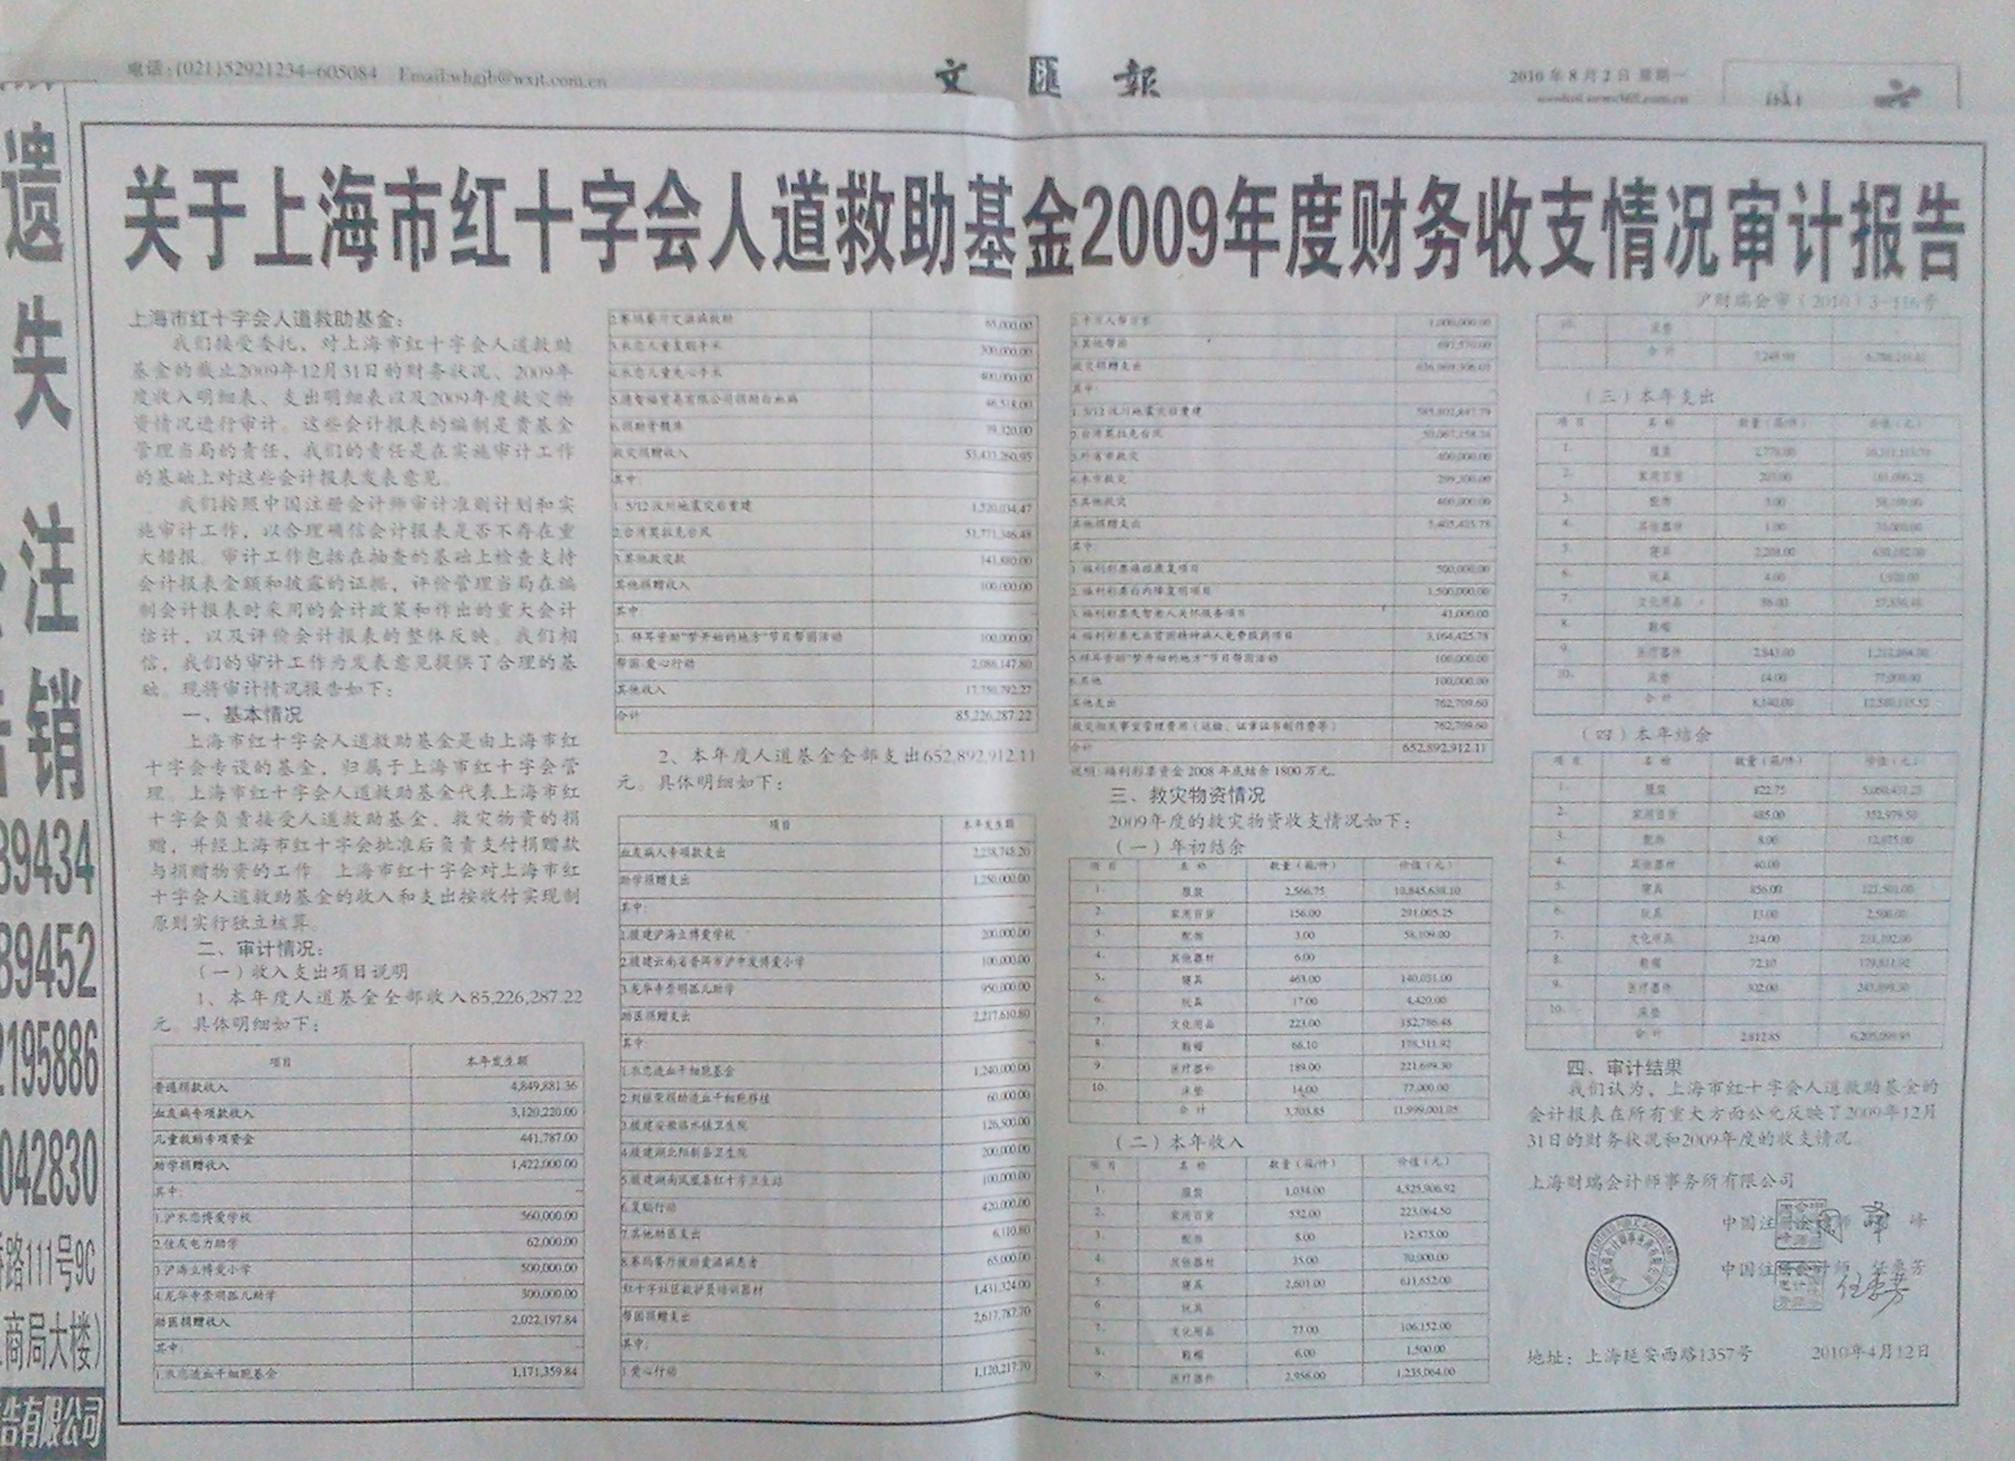 电话:(021)52921234-605084 Email:whgjb@wxjt.com.cn
文匯報
2010年8月2日 星期一
遗
失
注
销
39434
39452
2195886
042830
路111号9C
商局大楼)
告有限公司
关于上海市红十字会人道救助基金2009年度财务收支情况审计报告
沪财瑞会审(2010)3-116号
上海市红十字会人道救助基金:
我们接受委托,对上海市红十字会人道救助
基金的截止2009年12月31日的财务状况、2009年
度收入明细表、支出明细表以及2009年度救灾物
资情况进行审计。这些会计报表的编制是贵基金
管理当局的责任,我们的责任是在实施审计工作
的基础上对这些会计报表发表意见。
我们按照中国注册会计师审计准则计划和实
施审计工作,以合理确信会计报表是否不存在重
大错报。审计工作包括在抽查的基础上检查支持
会计报表金额和披露的证据,评价管理当局在编
制会计报表时采用的会计政策和作出的重大会计
估计,以及评价会计报表的整体反映。我们相
信,我们的审计工作为发表意见提供了合理的基
础。现将审计情况报告如下:
一、基本情况
上海市红十字会人道救助基金是由上海市红
十字会专设的基金,归属于上海市红十字会管
理。上海市红十字会人道救助基金代表上海市红
十字会负责接受人道救助基金、救灾物资的捐
赠,并经上海市红十字会批准后负责支付捐赠款
与捐赠物资的工作。上海市红十字会对上海市红
十字会人道救助基金的收入和支出按收付实现制
原则实行独立核算。
二、审计情况:
(一)收入支出项目说明
1、本年度人道基金全部收入85,226,287.22
元。具体明细如下:
项目 本年发生额
普通捐款收入 4,849,881.36
血友病专项款收入 3,120,220.00
儿童救助专项资金 441,787.00
助学捐赠收入 1,422,000.00
其中:
1.沪永恋博爱学校 560,000.00
2.住友电力助学 62,000.00
3.沪海立博爱小学 500,000.00
4.龙华寺崇明孤儿助学 300,000.00
助医捐赠收入 2,022,197.84
其中:
1.永恋造血干细胞基金 1,171,359.84
2.赛玛餐厅艾滋病救助 65,000.00
3.永恋儿童复聪手术 300,000.00
4.永恋儿童先心手术 400,000.00
6.捐助骨髓库
救灾捐赠收入 53,433,260.95
其中:
1. 5/12汶川地震灾后重建 1,520,034.47
2.台湾莫拉克台风 51,771,346.48
3.其他救灾款 141,880.00
其他捐赠收入 100,000.00
其中
1. 拜耳资助“梦开始的地方”节目帮困活动 100,000.00
帮困:爱心行动 2,086,147.80
其他收入 17,750,792.27
合计 85,226,287.22
2、本年度人道基金全部支出652,892,912.11
元。具体明细如下:
项目 本年发生额
血友病人专项款支出 2,238,748.20
助学捐赠支出 1,250,000.00
其中:
1.援建沪海立博爱学校 200,000.00
2.援建云南省普洱市沪申发博爱小学 100,000.00
3.龙华寺崇明孤儿助学 950,000.00
助医捐赠支出 2,217,610.80
其中
1.永恋造血干细胞基金 1,240,000.00
2.刘继荣捐助造血干细胞移植 60,000.00
3.援建安徽临水镇卫生院 126,500.00
4.援建湖北阳新县卫生院 200,000.00
5.援建湖南凤凰县红十字卫生站 100,000.00
6.复聪行动 420,000.00
7.其他助医支出 6,110.80
8.赛玛餐厅援助爱滋病患者 65,000.00
红十字社区救护员培训器材 1,431,324.00
帮困捐赠支出 2,617,787.70
其中:
1.爱心行动 1,120,217.70
2.千万人帮万家 1,000,000.00
3.其他帮困 497,570.00
救灾捐赠支出
其中:
1. 5/12汶川地震灾后重建
2.台湾莫拉克台风
3.外省市救灾 400,000.00
4.本市救灾 299,300.00
5.其他救灾 400,000.00
其他捐赠支出 5,405,425.78
其中:
1.福利彩票癌症康复项目 500,000.00
2.福利彩票白内障复明项目 1,500,000.00
3.福利彩票失智老人关怀服务项目 41,000.00
4.福利彩票无业贫困精神病人免费服药项目 3,164,425.78
5.拜耳资助“梦开始的地方”节目帮困活动 100,000.00
6.其他 100,000.00
其他支出 762,709.60
救灾相关事宜管理费用(运输、证章证书制作费等) 762,709.60
合计 652,892,912.11
说明:福利彩票资金2008年底结余1800万元。
三、救灾物资情况
2009年度的救灾物资收支情况如下:
(一)年初结余
项目 名称 数量(箱/件) 价值(元)
1. 服装 2,566.75 10,845,638.10
2. 家用百货 156.00 291,005.25
3. 配饰 3.00 58,109.00
4. 其他器材 6.00
5. 寝具 463.00 140,031.00
6. 玩具 17.00 4,420.00
7. 文化用品 223.00 182,786.48
8. 鞋帽 66.10 178,311.92
9. 医疗器件 189.00 221,699.30
10. 床垫 14.00 77,000.00
合计 3,703.85 11,999,001.05
(二)本年收入
项目 名称 数量(箱/件) 价值(元)
1. 服装 1,034.00 4,525,906.92
2. 家用百货 532.00 223,064.50
3. 配饰 8.00 12,875.00
4. 其他器材 35.00 70,000.00
5. 寝具 2,601.00 611,652.00
6. 玩具
7. 文化用品 77.00 106,152.00
8. 鞋帽 6.00 1,500.00
9. 医疗器件 2,956.00 1,235,064.00
10. 床垫
合计 7,249.00
(三)本年支出
项目 名称 数量(箱/件) 价值(元)
1. 服装 2,778.00
2. 家用百货 203.00
3. 配饰 3.00 58,109.00
4. 其他器材 1.00 70,000.00
5. 寝具 2,208.00
6. 玩具 4.00
7. 文化用品 86.00
8. 鞋帽
9. 医疗器件 2,843.00
10. 床垫 14.00 77,000.00
合计 8,140.00
(四)本年结余
项目 名称 数量(箱/件) 价值(元)
1. 服装 822.75
2. 家用百货 485.00 352,979.50
3. 配饰 8.00 12,875.00
4. 其他器材 40.00
5. 寝具 856.00 121,501.00
6. 玩具 13.00 2,500.00
7. 文化用品 214.00
8. 鞋帽 72.10 179,811.92
9. 医疗器件 302.00
10. 床垫
合计 2,812.85
四、审计结果
我们认为,上海市红十字会人道救助基金的
会计报表在所有重大方面公允反映了2009年12月
31日的财务状况和2009年度的收支情况。
上海财瑞会计师事务所有限公司
中国注册会计师 周 峰
中国注册会计师 任素芳
地址:上海延安西路1357号 2010年4月12日